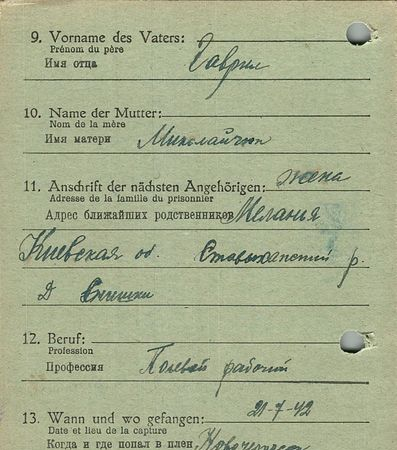 9. Vorname des Vaters:
Prénom du père
Имя отца
Гаврил
10. Name der Mutter:
Nom de la mère
Имя матери
Миколайчук
11. Anschrift der nächsten Angehörigen: жена
Adresse de la famille du prisonnier
Адрес ближайших родственников Мелания
Киевская об. р.
Д
12. Beruf:
Profession
Профессия
Полевай рабочий
13. Wann und wo gefangen: 21-7-42
Date et lieu de la capture
Когда и где попал в плен